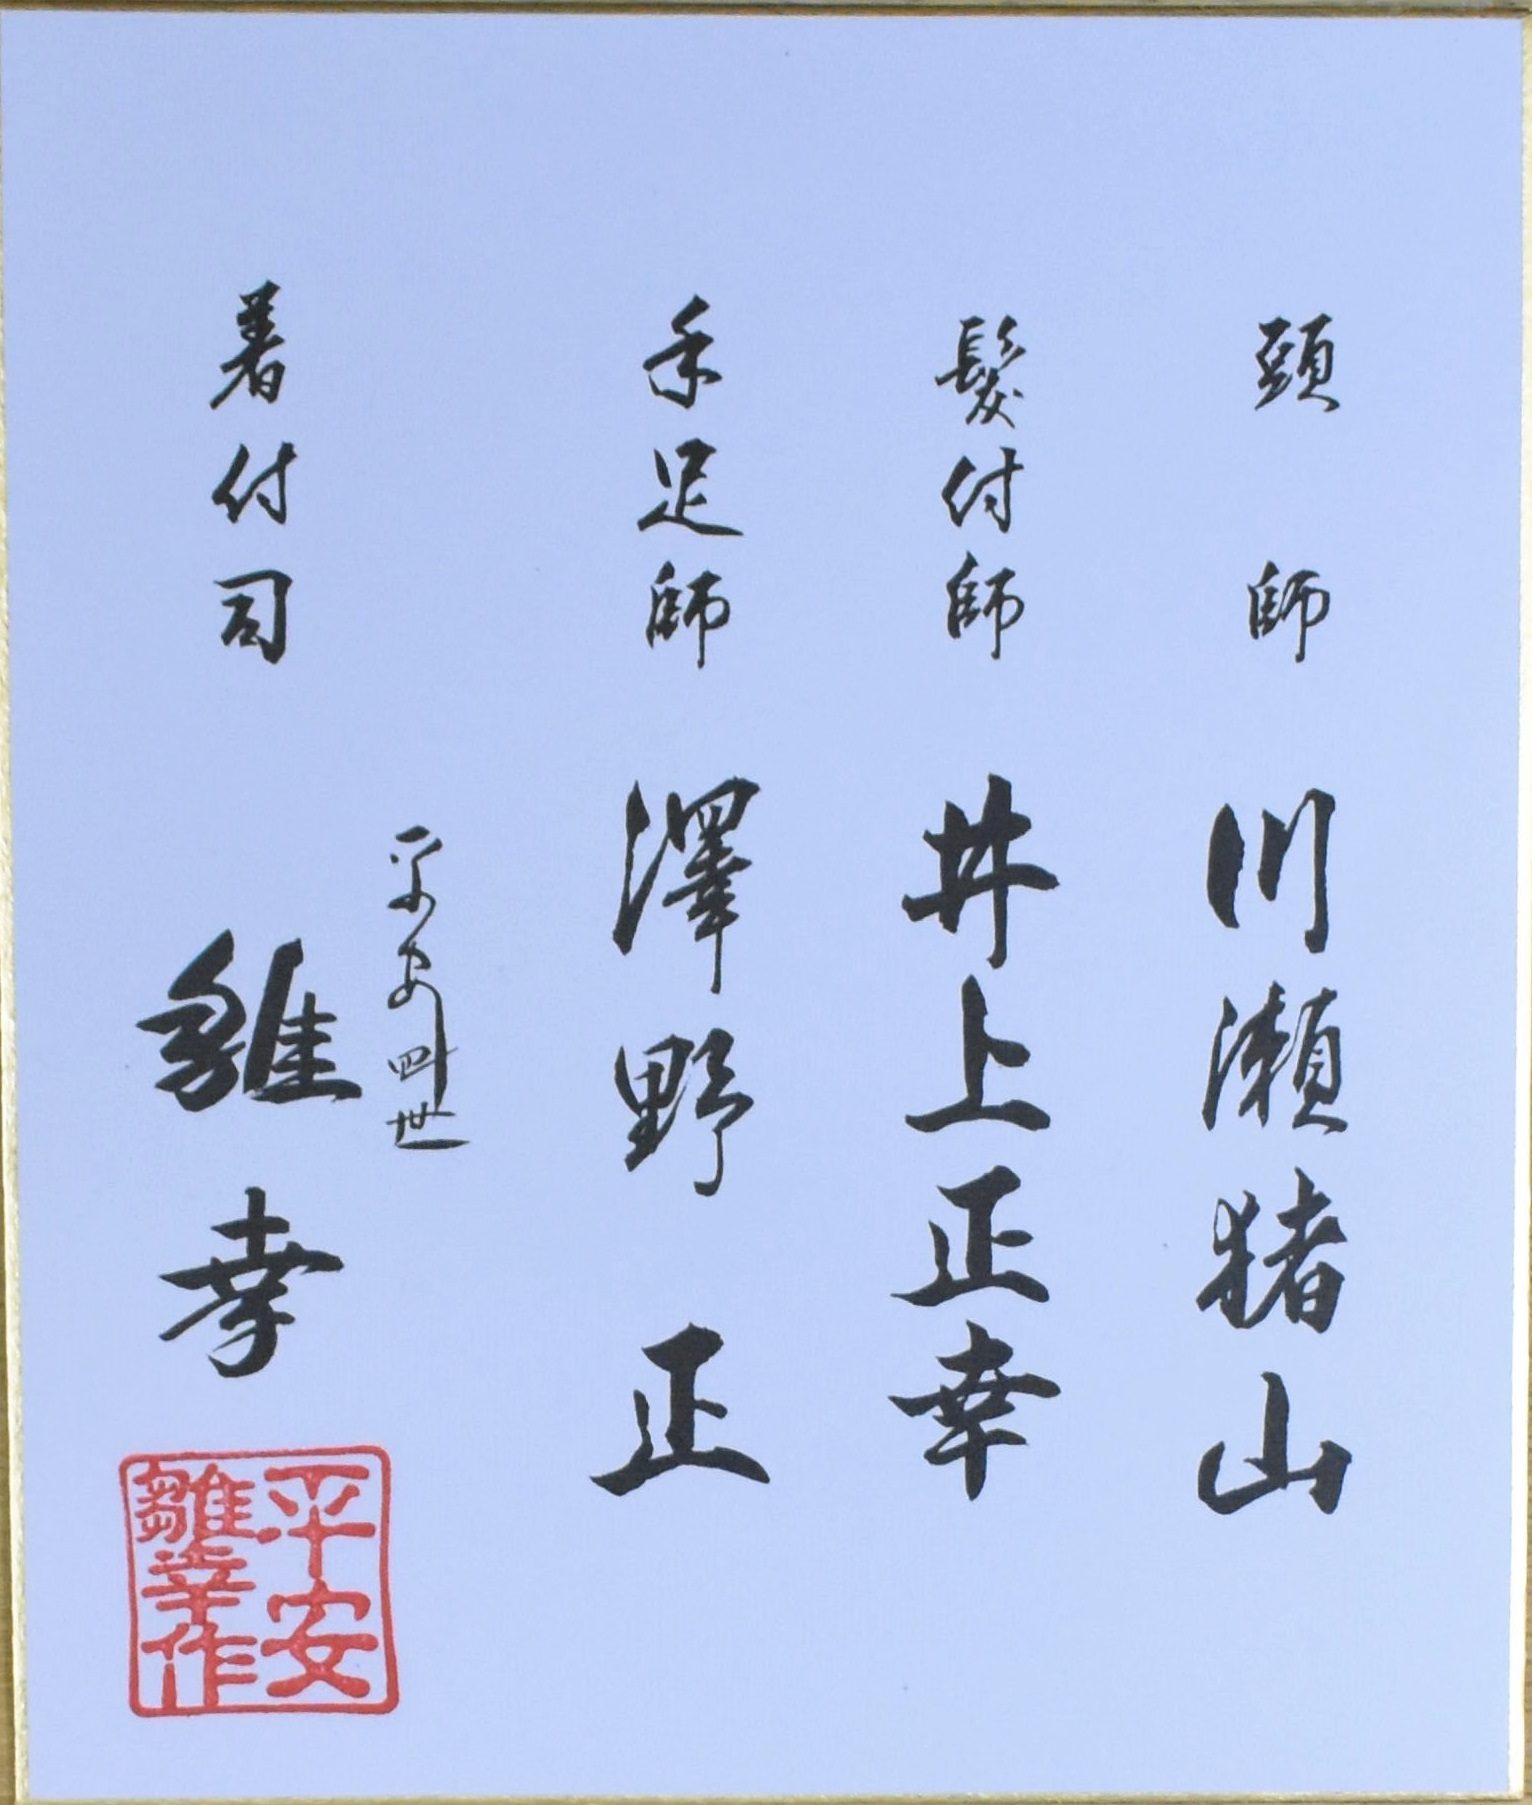 頭師 川瀬猪山
髪付師 井上正幸
手足師 澤野正
平安四世
着付司 雛幸
平安
雛幸作